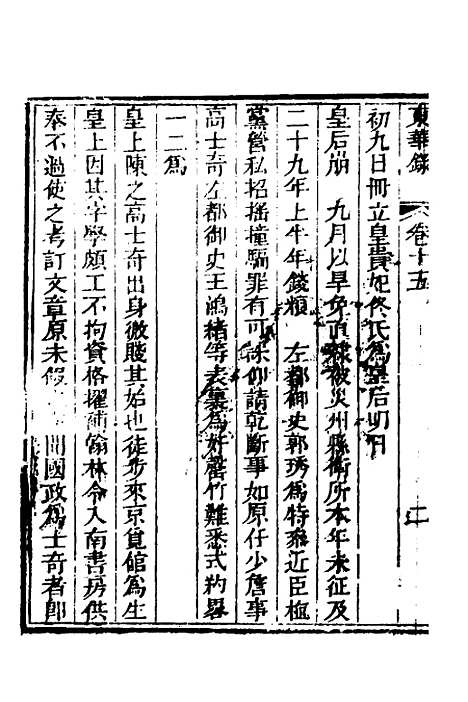 東華錄 卷十五 二
初九日冊立皇貴妃佟氏為皇后明日
皇后崩 九月以旱免直隸被災州縣衛所本年未征及
二十九年上半年錢糧 左都御史郭琇為特參近臣植
黨營私招搖撞騙罪有可誅仰請乾斷事如原任少詹事
高士奇左都御史王鴻緒等表裏為奸罄竹難悉式約畧
一二為
皇上陳之高士奇出身微賤其始也徒步來京覓館為生
皇上因其字學頗工不拘資格擢補翰林令入南書房供
奉不過使之考訂文章原未假 聞國政為士奇者即